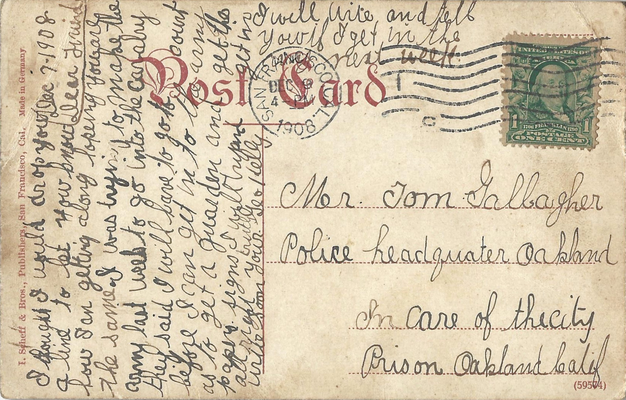 Dec 7 1908
Dear Friend
I thought I would drop you
a line to let you know
how I am getting along hoping you are
the same I was trying to make the
army last week to go into the cavalry
they said I will have to go to court
before I can get in to the army
as to get a guarden and get the
papers signs I will try and get in
all right
from your
I will write and tell
you if I get in the
next week
Post Card
SAN FRANCISCO, CAL.
DEC 8
4 PM
1908
UNITED STATES OF
FRANKLIN
1 POSTAGE 1
ONE CENT
Mr. Tom Gallagher
Police headquater Oakland
In care of the city
Prison Oakland Calif
(59504)
I. Scheff & Bros., Publishers, San Francisco, Cal. Made in Germany